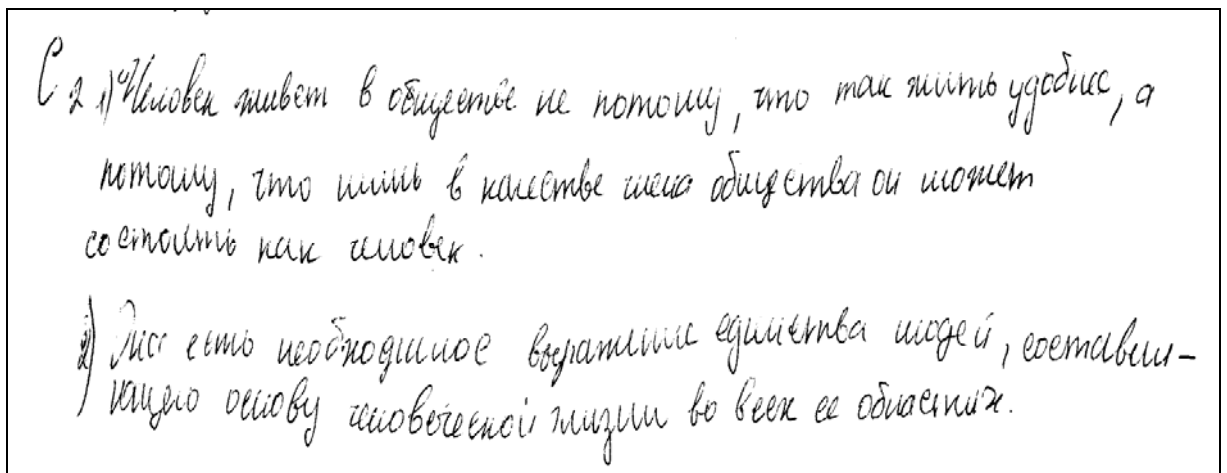 С2 1) Человек живет в обществе не потому, что так жить удобнее, а
потому, что лишь в качестве члена общества он может
состоять как человек.
2) есть необходимое выражение единства людей, составля-
ющего основу человеческой жизни во всех ее областях.